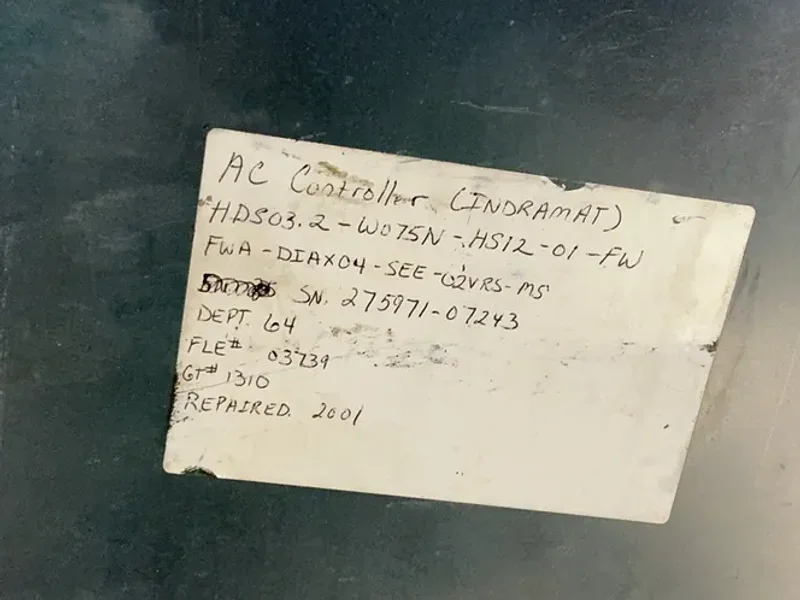 AC Controller (INDRAMAT)
HDS03.2-W075N-HS12-01-FW
FWA-DIAX04-SEE-02VRS-MS
SN. 275971-07243
DEPT. 64
FLE# 03739
GT# 1310
REPAIRED. 2001